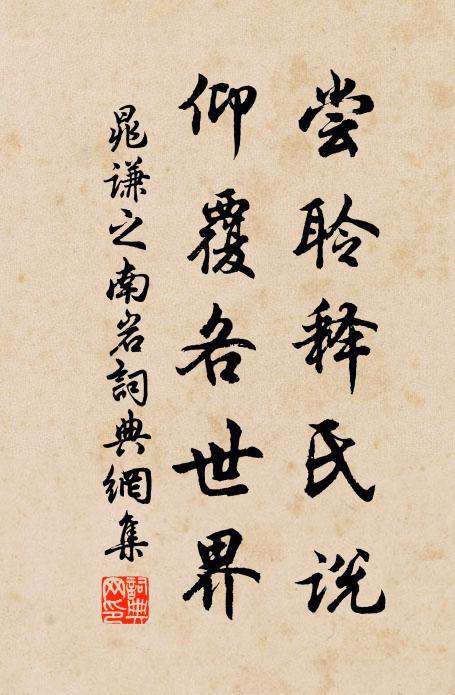 尝聆释氏说
仰覆各世界
晁谦之南岩詞典網集
詞典网印